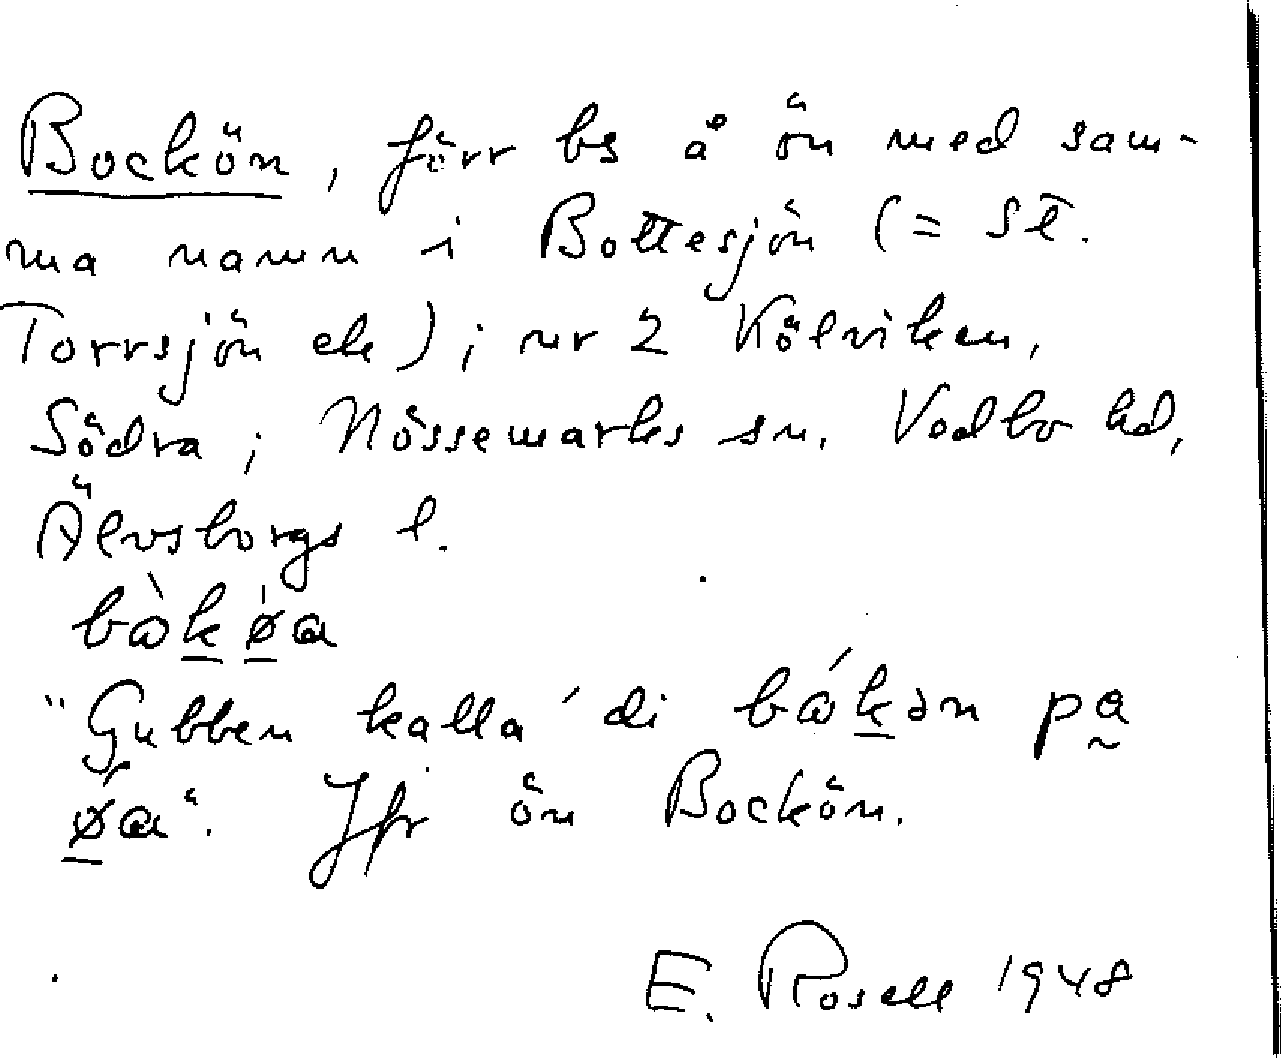 Bockön, förr bs å ön med sam-
ma namn i Bottesjön (= St.
Torrsjön ek); nr 2 Kölviken,
Södra; Nössemarks sn, Vedbo hd,
Älvsborgs l.
bàk øa
"Gubben kalla' di bákən pa
øa". Jfr ön Bockön.
E. Rosell 1948